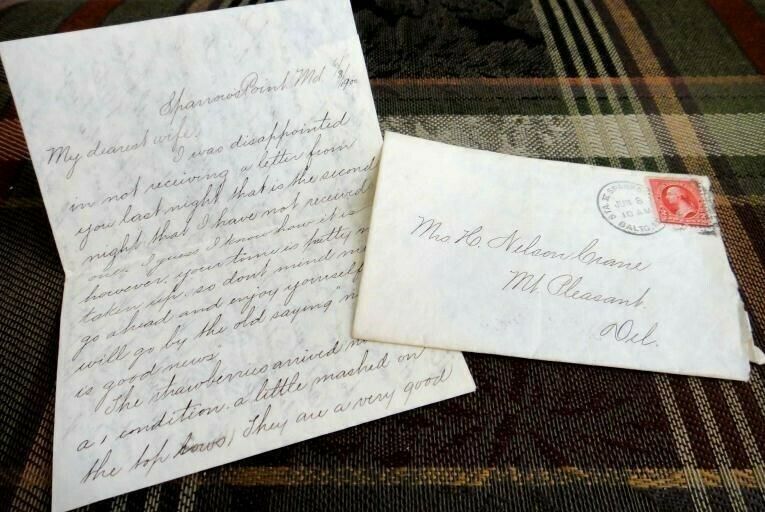 Sparrows Point, Md 6/8/1900
My dearest wife,
I was disappointed
in not receiving a letter from
you last night that is the second
night that I have not received
one. I guess I know how it is
however, your time is pretty
taken up, so dont mind me
go ahead and enjoy yourself
will go by the old saying "no
is good news.
The strawberries arrived
a, condition. a little mashed on
the top rows, They are a very good
STA SPARROWS
JUN 8
10 AM
BALTO.
Mrs H. Nelson Crane
Mt. Pleasant.
Del.